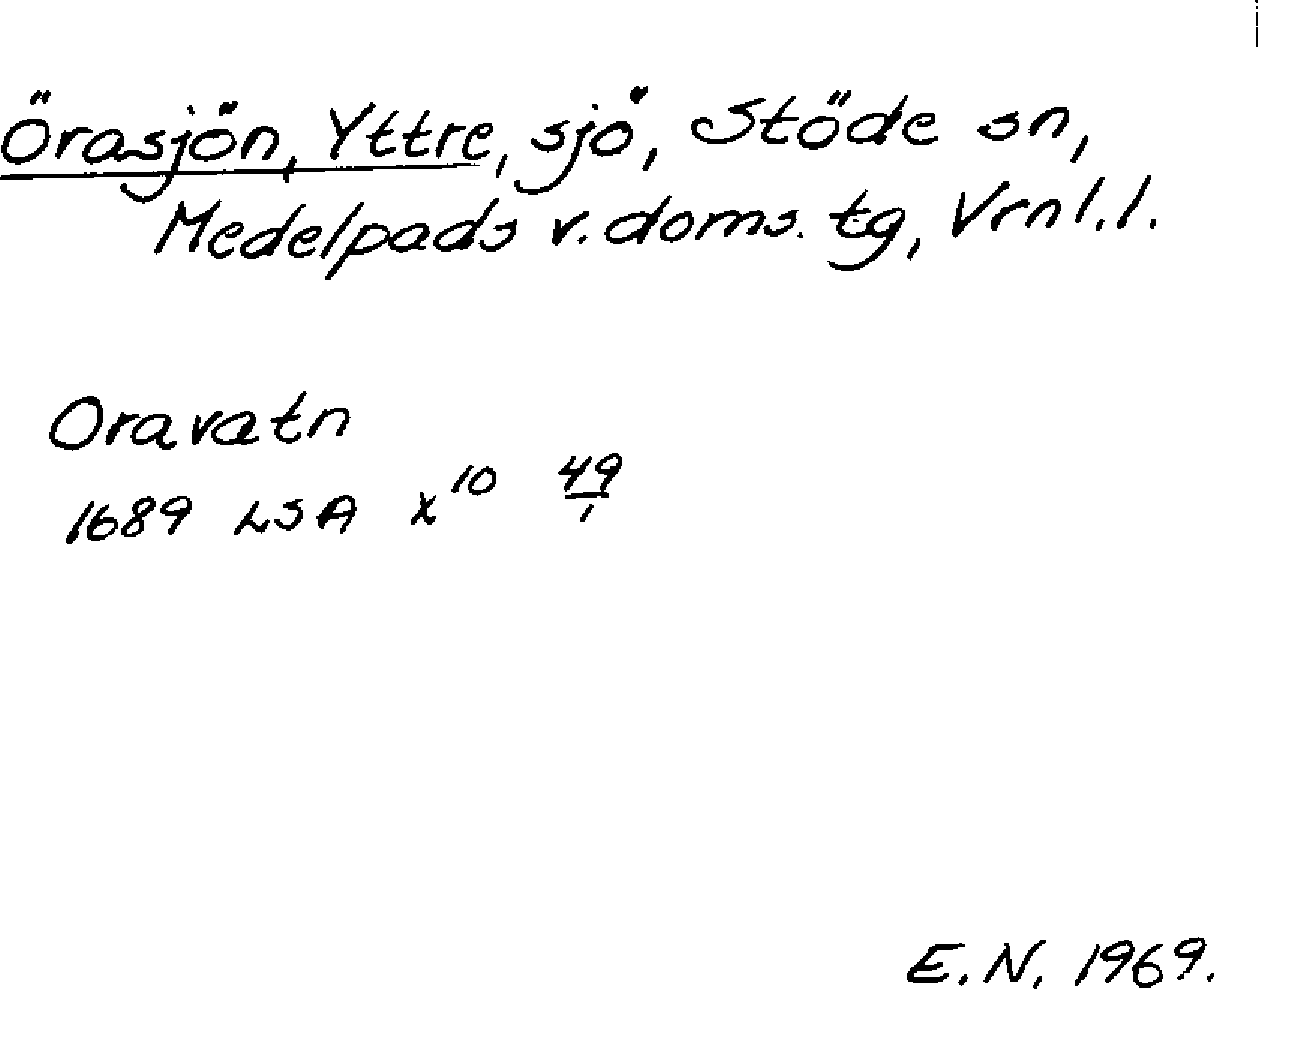 Örasjön, Yttre, sjö, Stöde sn,
Medelpads v. doms. tg, Vrnl. l.
Oravatn
1689 LSA X¹⁰ 49/1
E. N. 1969.